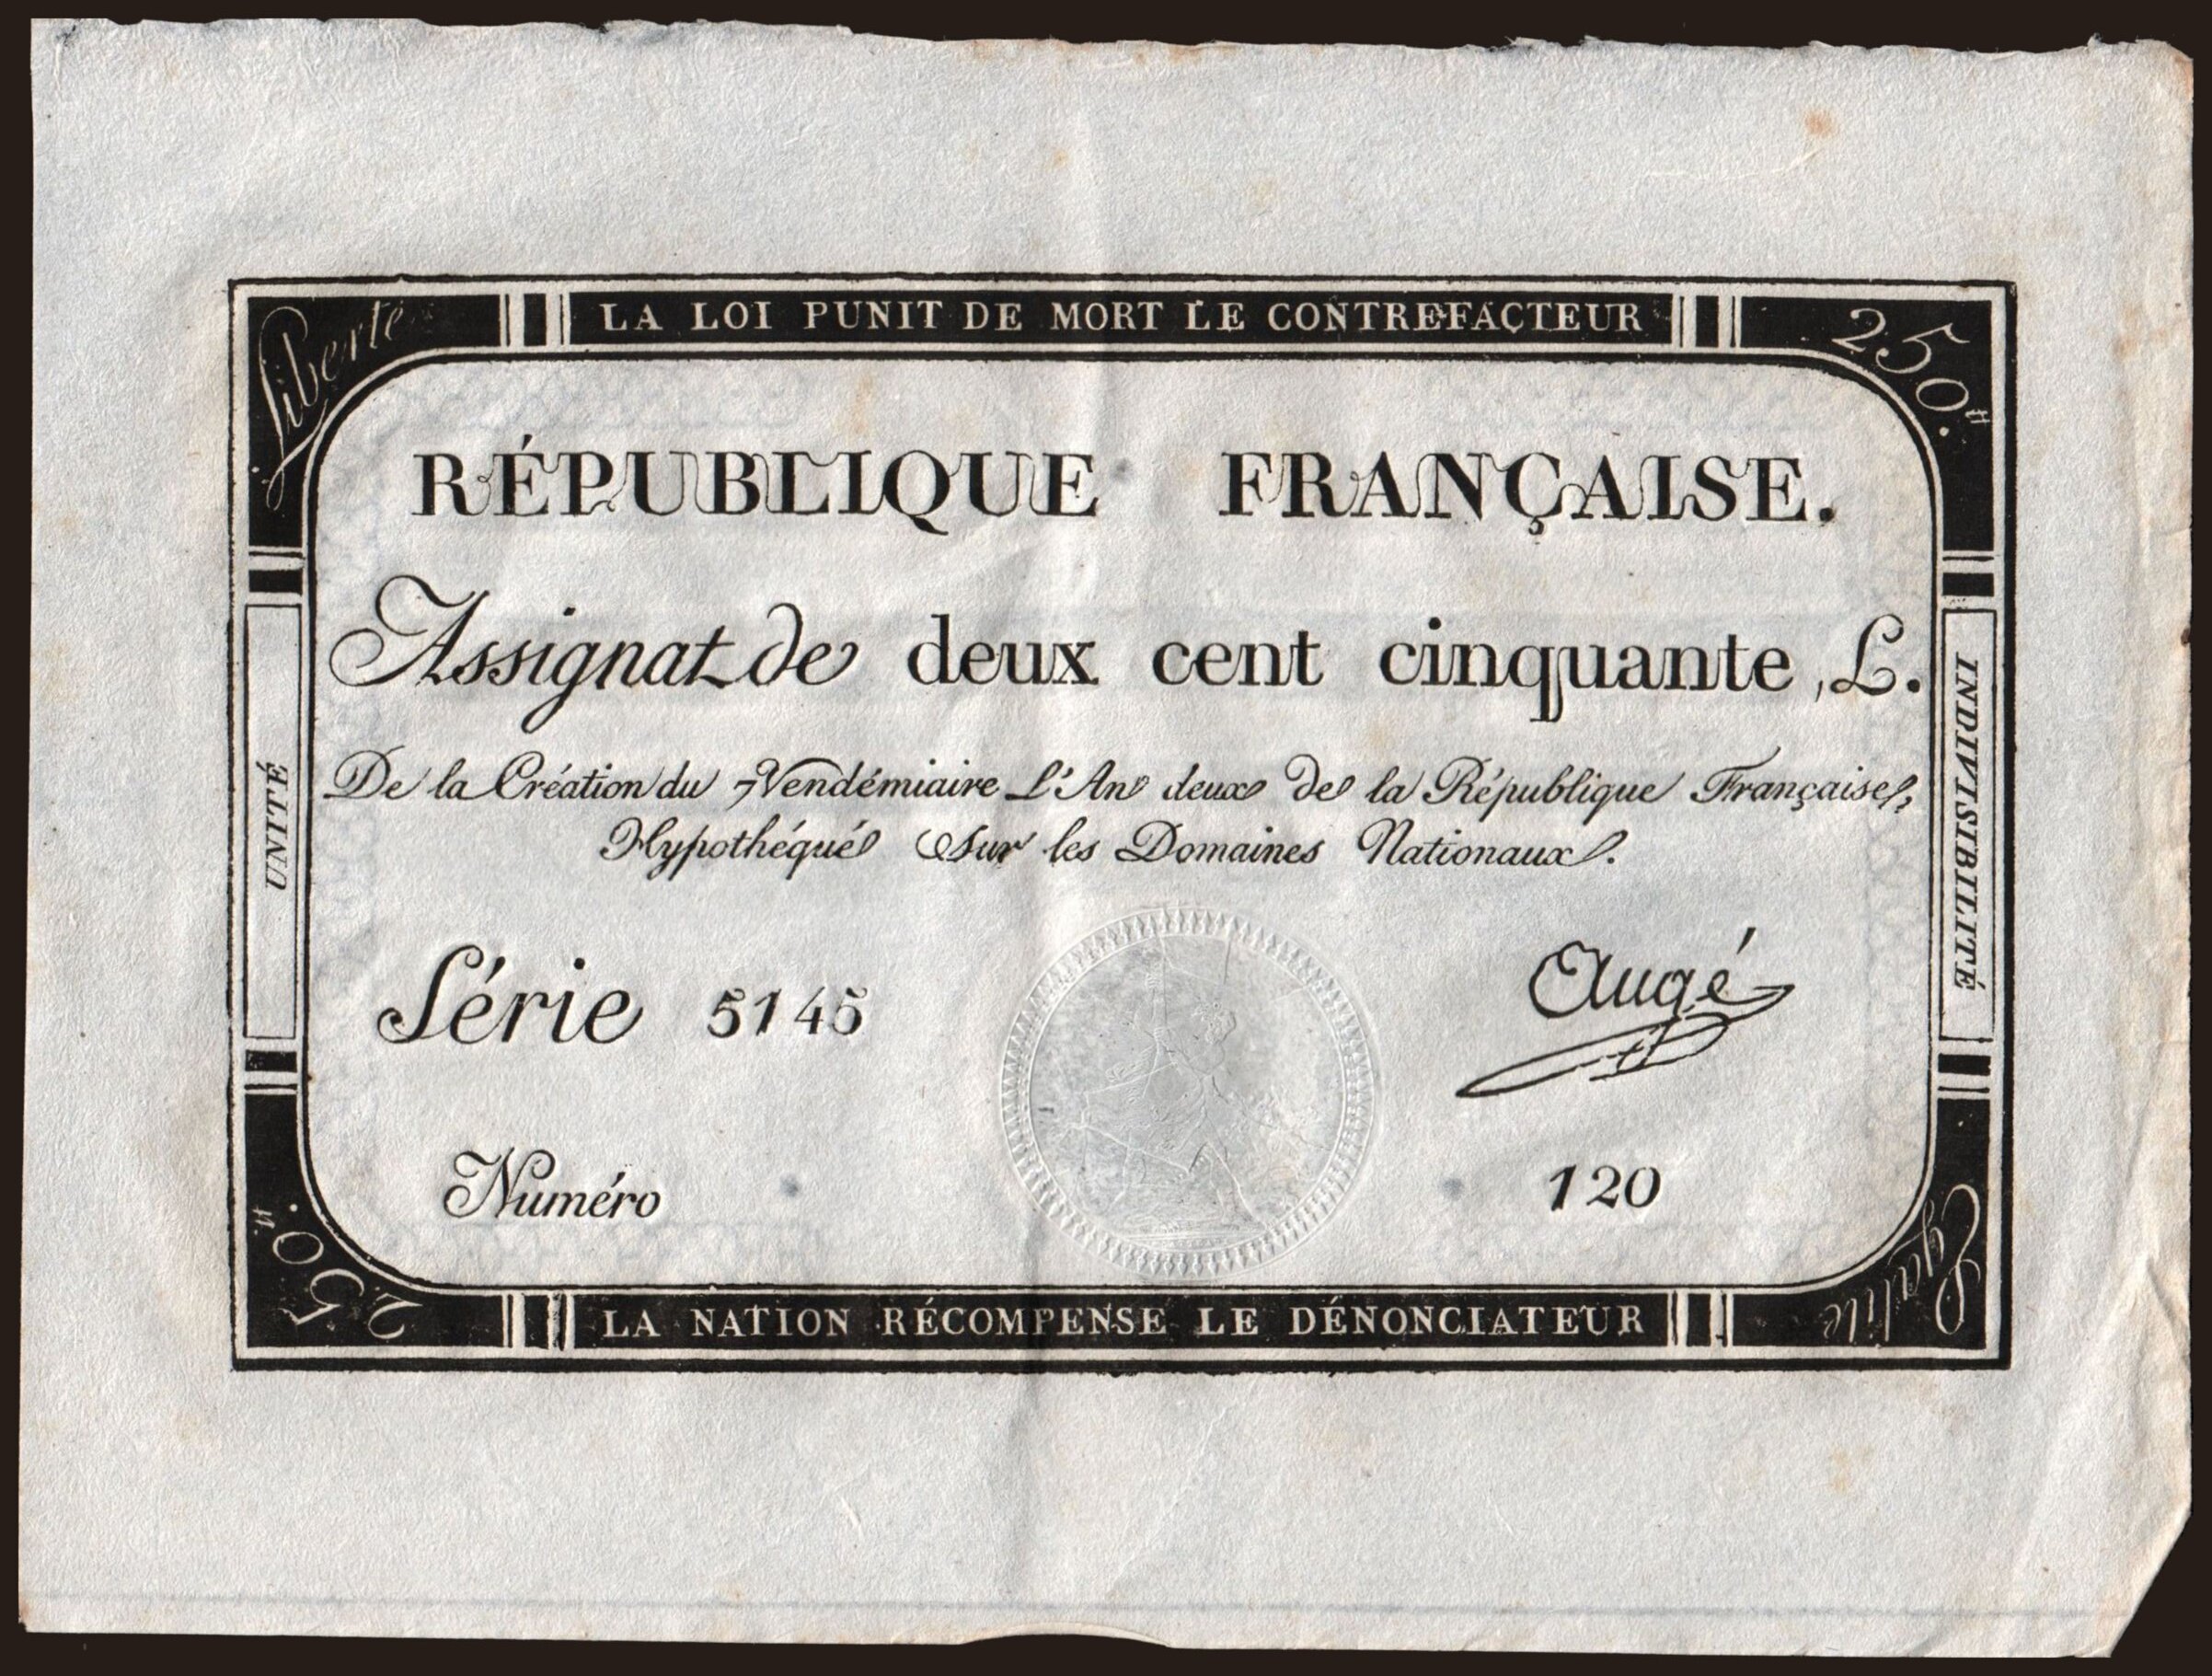 Liberté
LA LOI PUNIT DE MORT LE CONTREFACTEUR
250.ᴴ
RÉPUBLIQUE FRANÇAISE.
Assignat de deux cent cinquante L.
De la Création du 7 Vendémiaire L'An deux de la République Française,
Hypothéqué Sur les Domaines Nationaux.
UNITÉ
INDIVISIBILITÉ
Série 5145
Augé
Numéro
120
250.ᴴ
LA NATION RÉCOMPENSE LE DÉNONCIATEUR
Egalité